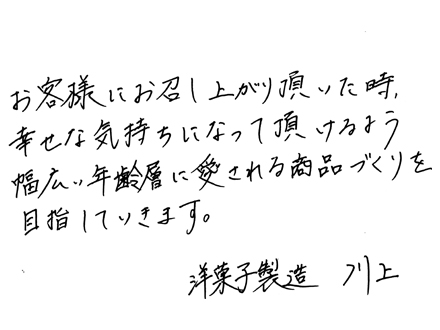 お客様にお召し上がり頂いた時、
幸せな気持ちになって頂けるよう
幅広い年齢層に愛される商品づくりを
目指していきます。
洋菓子製造 川上